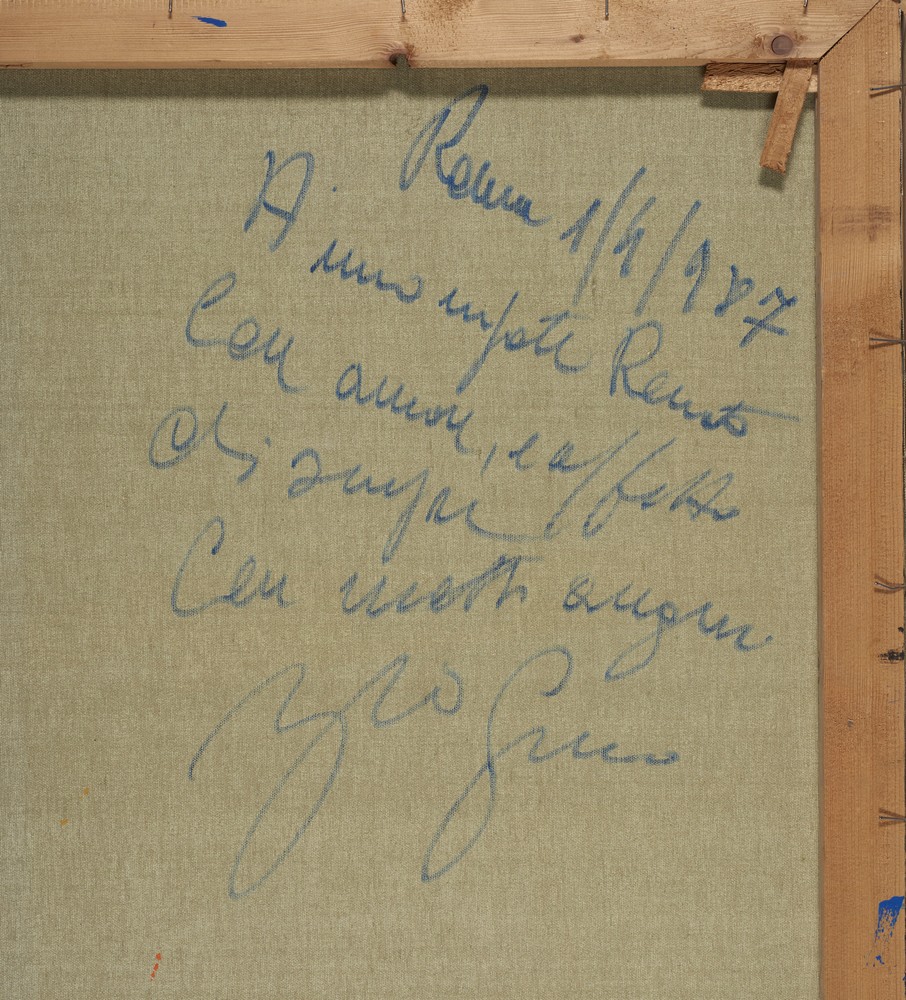 Roma 1/4/987
A
mio nipote Renato
Con amore, e affetto
di sempre
Con molti auguri
Zio